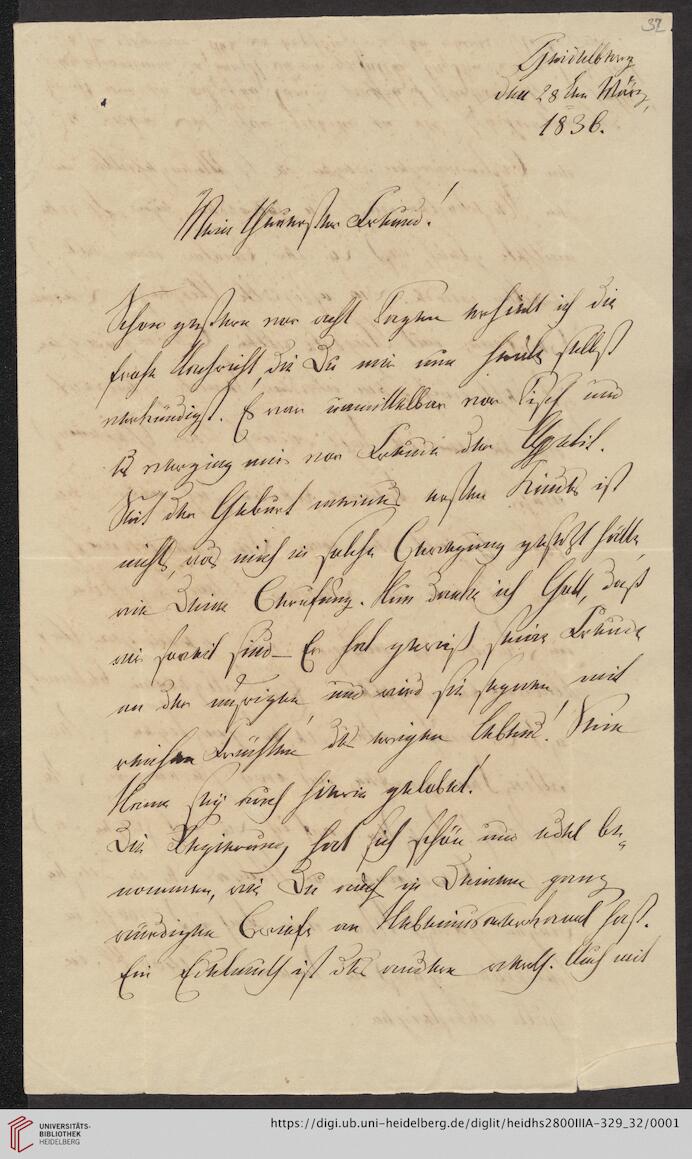 32
Heidelberg
den 28ten März,
1836.
Mein theuerster Freund!
Schon gestern vor acht Tagen erhielt ich die
frohe Nachricht, die Du mir nun heute selbst
verkündigst. Es war unmittelbar vor Tisch und
es verging mir vor Freude der Appetit.
Seit der Geburt meines ersten Kindes ist
nichts, was mich in solche Bewegung gesetzt hätte,
wie Deine Berufung. Nun danke ich Gott, daß
wir soweit sind – Er hat gewiß seine Freude
an der unsrigen und wird sie segnen mit
reichen Früchten des ewigen Lebens! Sein
Name sey auch hierin gelobet!
Die Regierung hat sich schön und edel be-
nommen, wie Du auch in Deinem ganz
würdigen Briefe an hast.
Ein Edelmuth ist des andern werth. Auch mit
UNIVERSITÄTS-
BIBLIOTHEK
HEIDELBERG
https://digi.ub.uni-heidelberg.de/diglit/heidhs2800IIIA-329_32/0001